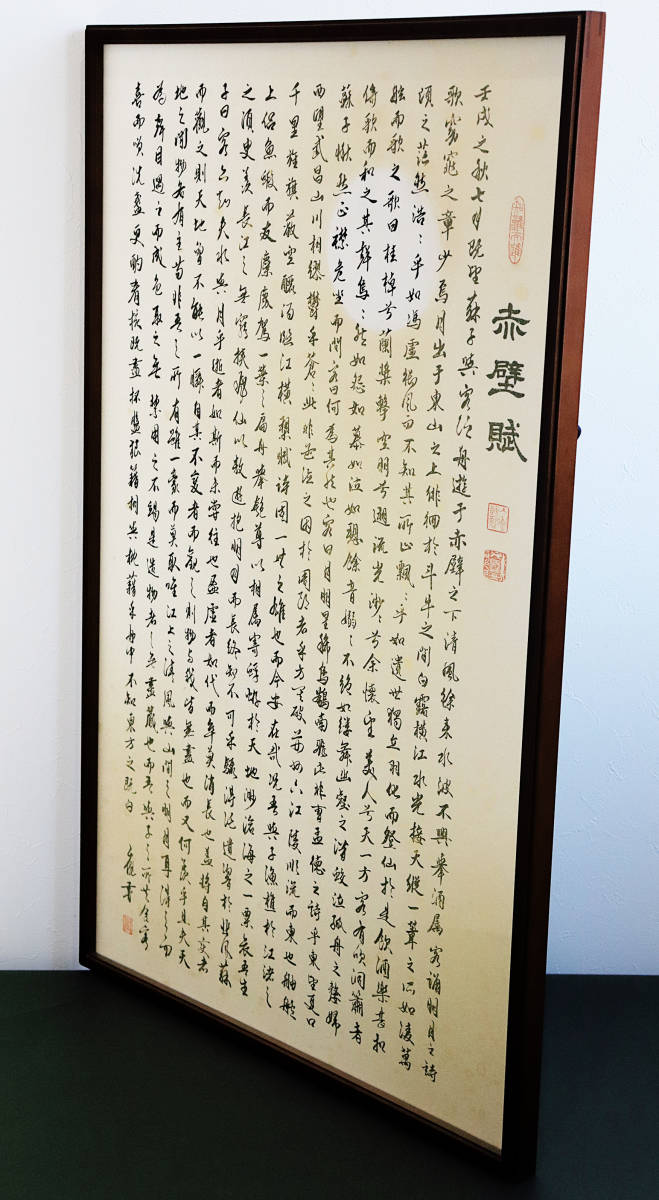 赤壁賦
壬戌之秋七月既望蘇子與客泛舟遊于赤壁之下清風徐來水波不興舉酒属客誦明月之詩
歌窈窕之章少焉月出于東山之上徘徊於斗牛之間白露横江水光接天縱一葦之所如凌萬
頃之茫然浩〻乎如馮虚御風而不知其所止飄〻乎如遺世獨立羽化而登仙於是飲酒樂甚扣
舷而歌之歌曰桂棹兮蘭槳擊空明兮遡流光渺〻兮余懷望美人兮天一方客有吹洞簫者
倚歌而和之其聲烏〻然如怨如慕如泣如愬餘音嫋〻不絶如縷舞幽壑之潜蛟泣孤舟之嫠婦
蘇子愀然正襟危坐而問客曰何為其然也客曰月明星稀烏鵲南飛此非曹孟德之詩乎東望夏口
西望武昌山川相繆鬱乎蒼〻此非孟德之困於周郎者乎方其破荊州下江陵順流而東也舳艫
千里旌旗蔽空釃酒臨江横槊賦詩固一世之雄也而今安在哉况吾與子漁樵於江渚之
上侶魚蝦而友麋鹿駕一葉之扁舟舉匏尊以相属寄蜉蝣於天地渺滄海之一粟哀吾生
之須臾羨長江之無窮挟飛仙以敖遊抱明月而長終知不可乎驟得託遺響於悲風蘇
子曰客亦知夫水與月乎逝者如斯而未嘗往也盈虚者如代而卒莫消長也盖將自其變者
而觀之則天地曾不能以一瞬自其不變者而觀之則物与我皆無盡也而又何羨乎且夫天
地之間物各有主苟非吾之所有雖一毫而莫取唯江上之清風與山間之明月耳得之而
為聲目遇之而成色取之無禁用之不竭是造物者之無盡蔵也而吾與子之所共食客
喜而咲洗盞更酌肴核既盡杯盤狼藉相與枕藉乎舟中不知東方之既白 書